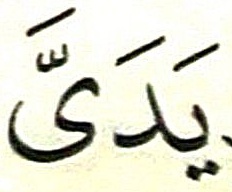 يَدَىَّ